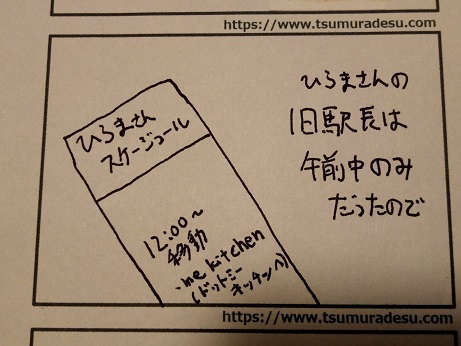 https://www.tsumuradesu.com
ひろまさんの
1日駅長は
午前中のみ
だったので
ひろまさん
スケージュール
12:00~
移動
.me kitchen
(ドットミー
キッチンへ)
https://www.tsumuradesu.com